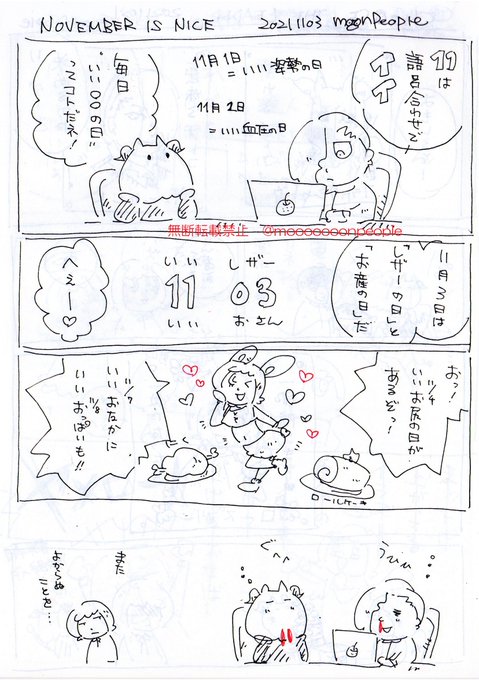 NOVEMBER IS NICE 20211103 moonPeople
11は
語呂合わせで
イイ
11月1日
=いい姿勢の日
11月2日
=いい血圧の日
毎日
"いい〇〇の日"
ってコトだネ!
無断転載禁止 @mooooooonpeople
11月3日は
「レザーの日」と
「お産の日」だ
いい レザー
11 03
いい おさん
へぇー♡
おっ!
11/4
いいお尻の日が
あるぞっ!
11/7
いいおなかに
11/8
いいおっぱいも!!
ロールケーキ
うひひ
ぐへへ
また
よからぬ
ことを…